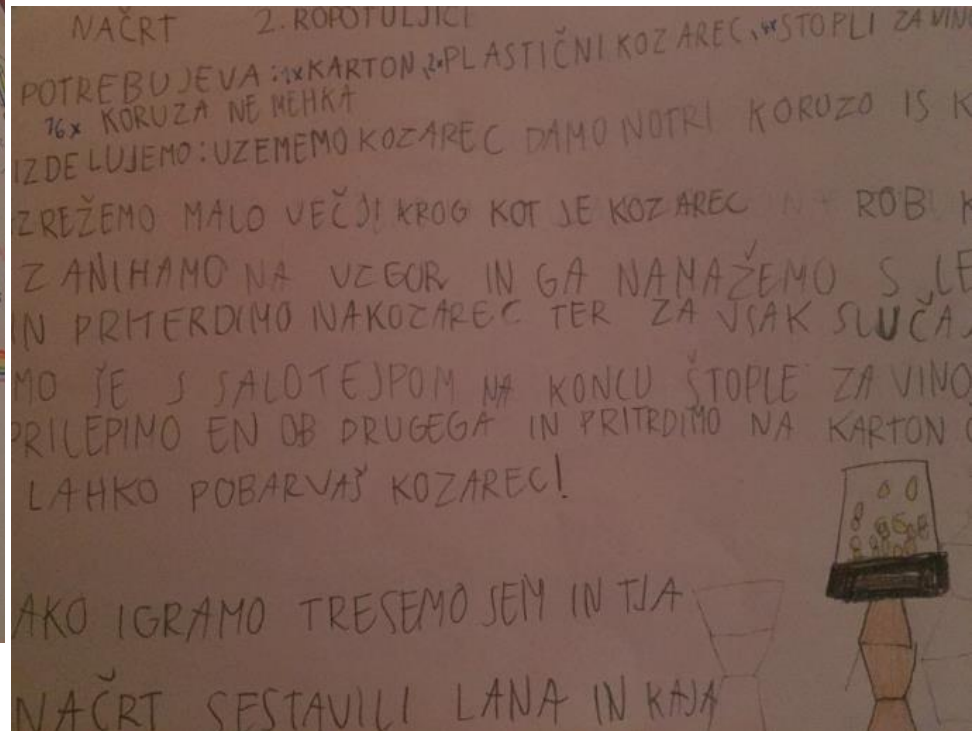 NAČRT 2. ROPOTULJICE
POTREBUJEVA: 1x KARTON, 2x PLASTIČNI KOZAREC, 4x ŠTOPLI ZA VINO
76x KORUZA NE MEHKA
IZDELUJEMO: UZEMEMO KOZAREC DAMO NOTRI KORUZO IS K
ZREŽEMO MALO VEČJI KROG KOT JE KOZAREC ROB K
ZANIHAMO NA VZGOR IN GA NAMAŽEMO S LE
IN PRITERDIMO NAKOZAREC TER ZA VSAK SLUČAJ
MO ŠE S SALOTEJPOM NA KONCU ŠTOPLE ZA VINO
PRILEPIMO EN OB DRUGEGA IN PRITRDIMO NA KARTON
LAHKO POBARVAŠ KOZAREC!
AKO IGRAMO TRESEMO SEM IN TJA
NAČRT SESTAVILI LANA IN KAJA